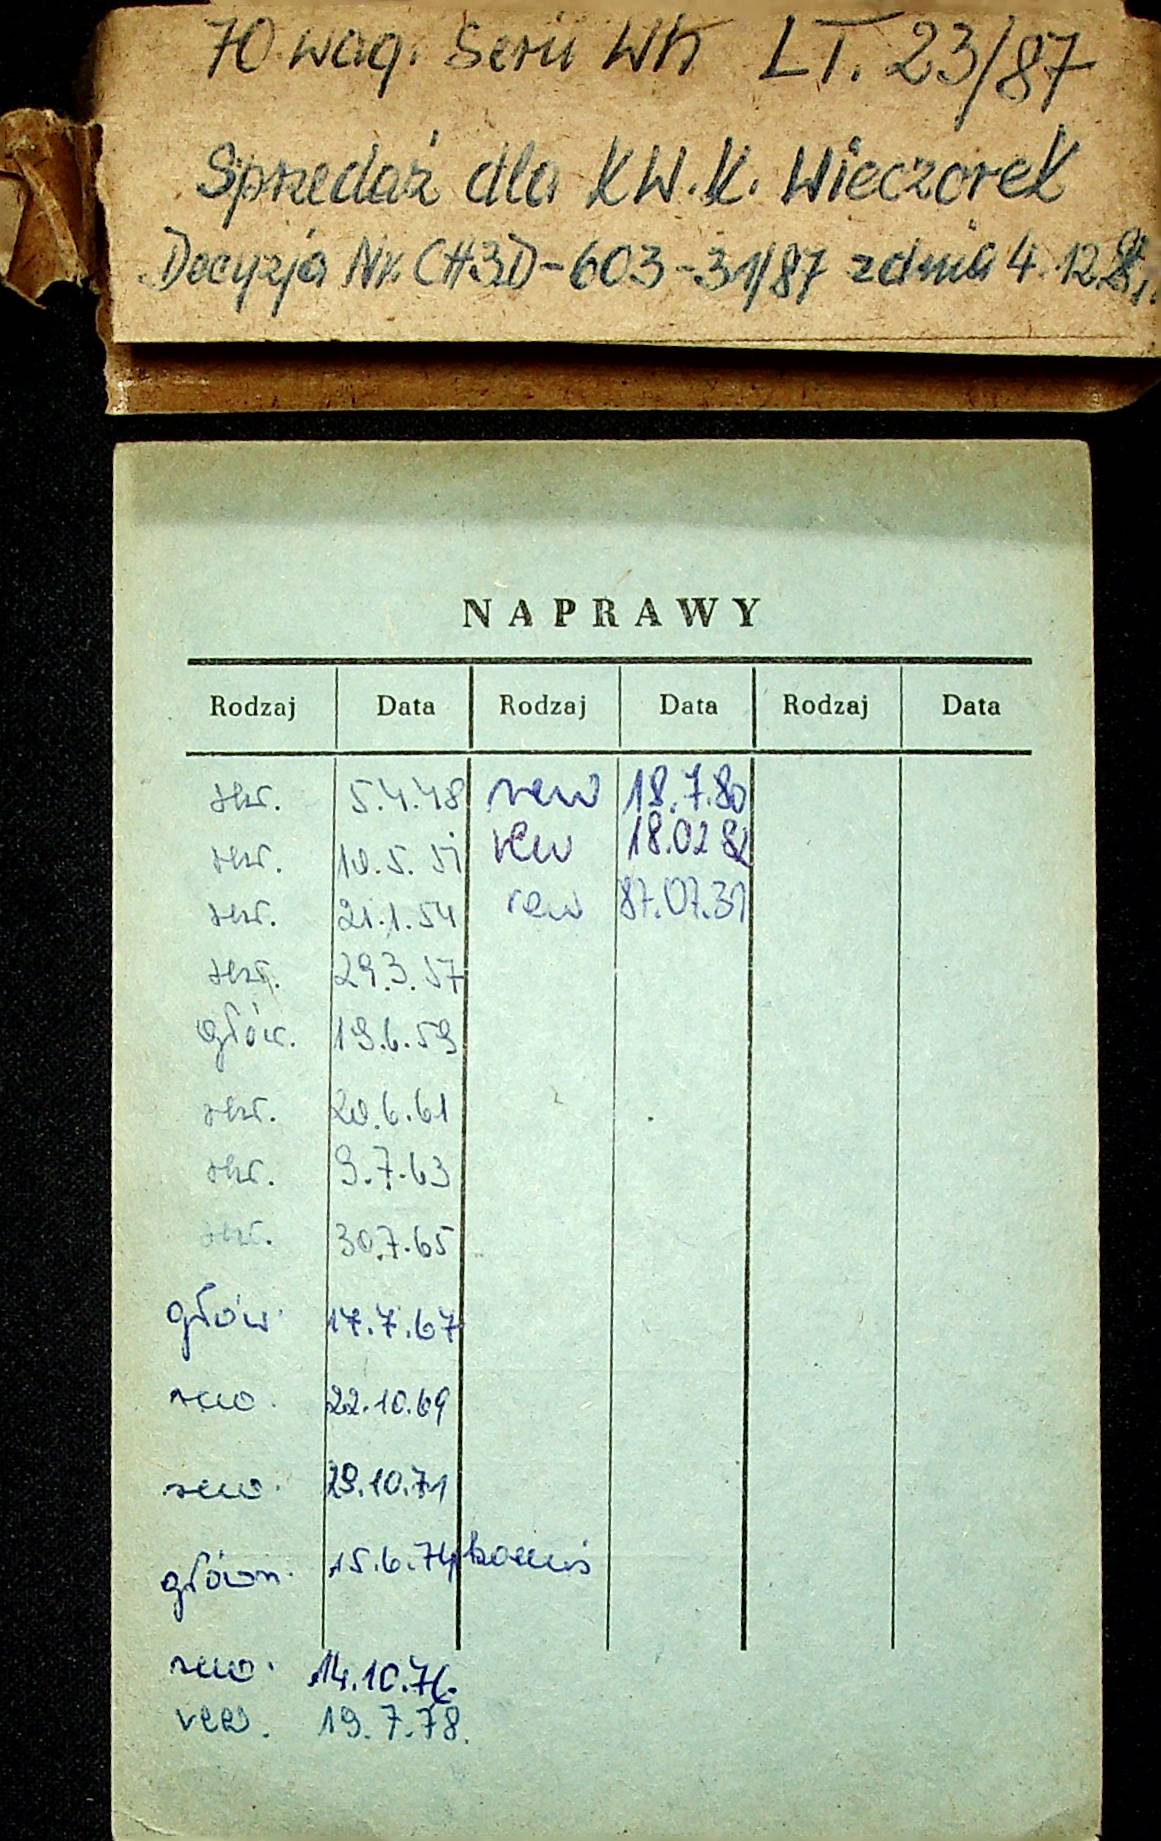 70 wag. Serii Wh LT. 23/87
Sprzedaż dla KW.K. Wieczorek
Decyzja Nr. CH3D-603-31/87 z dnia 4.12.
NAPRAWY
Rodzaj Data Rodzaj Data Rodzaj Data
śkr. 5.4.48 rew 18.7.80
śkr. 10.5.51 rew 18.02 82
śkr. 21.1.54 rew 87.07.31
śkr. 29.3.57
głów. 19.6.59
śkr. 20.6.61
śkr. 9.7.63
śkr. 30.7.65
głów. 17.7.67
rew. 22.10.69
rew. 29.10.71
główn. 15.6.74
rew. 14.10.76
rew. 19.7.78.